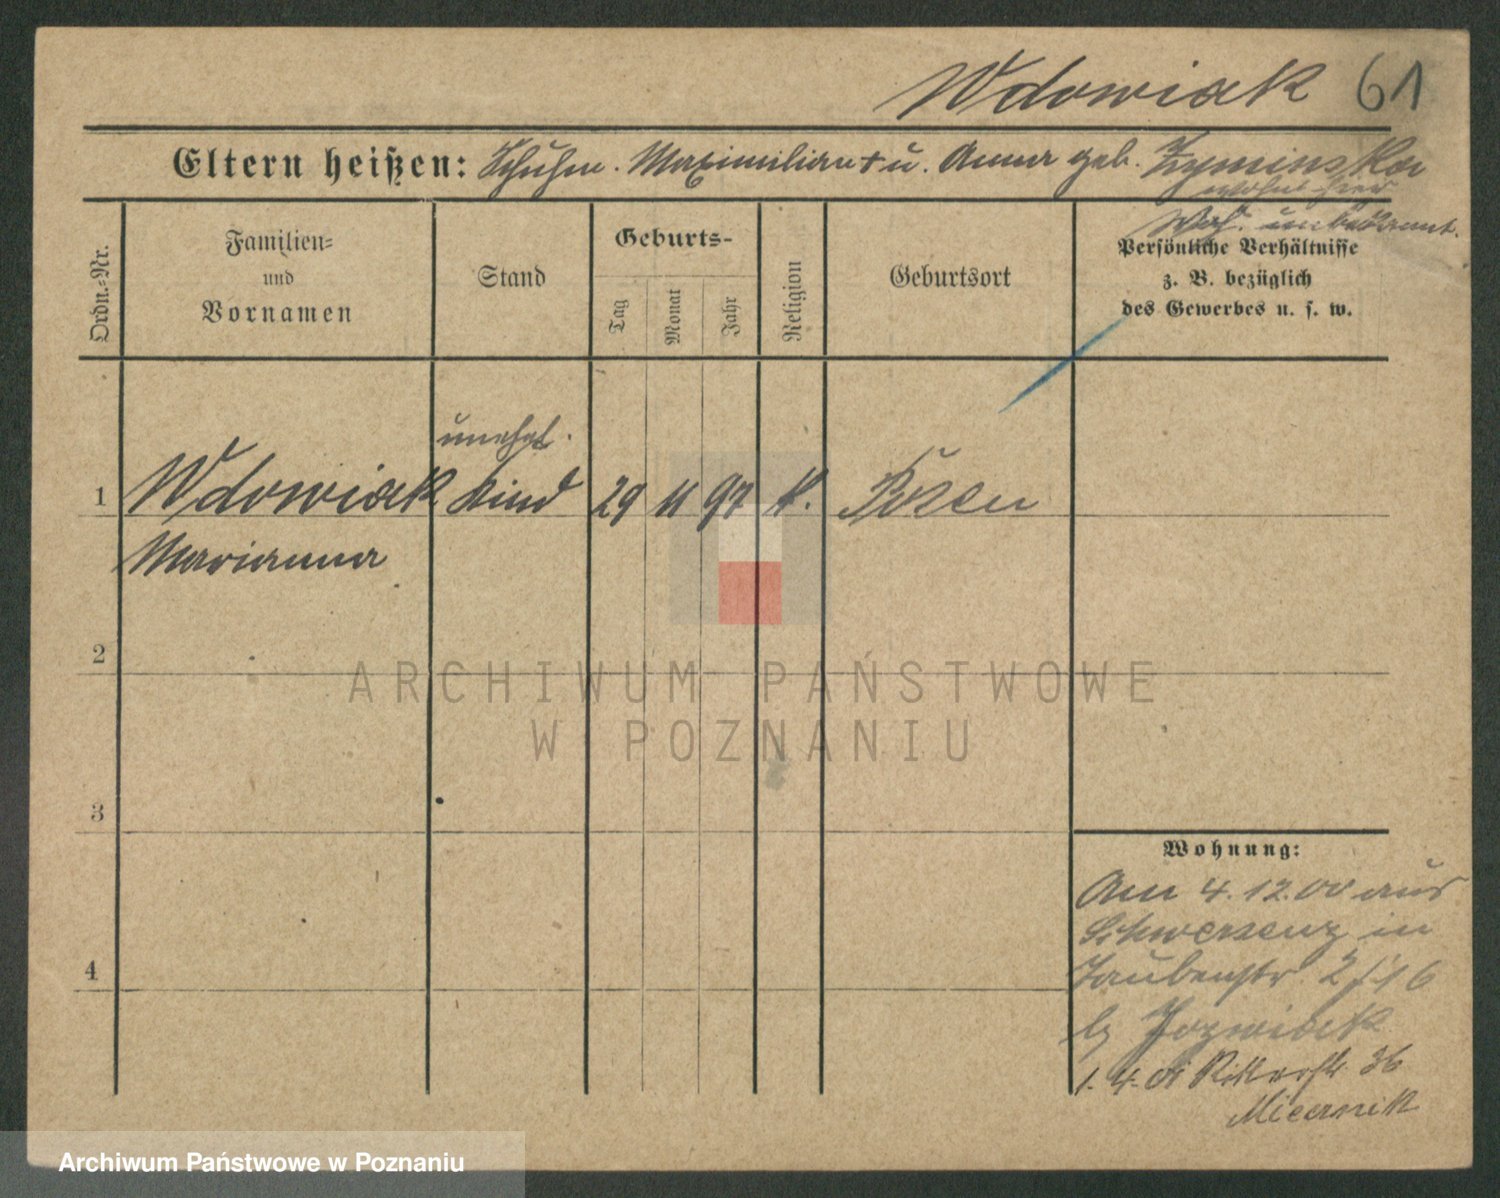 Wdowiak 61
Eltern heißen: Schuhm. Maximilian † u. Anna geb. Zyminska
wohnt hier
Woh. unbekannt.
Ordn.-Nr.
Familien-
und
Vornamen
Stand
Geburts-
Tag
Monat
Jahr
Religion
Geburtsort
Persönliche Verhältnisse
z. B. bezüglich
des Gewerbes u. s. w.
unehel.
1 Wdowiak Kind 29 11 97 K. Posen
Marianna
2
ARCHIWUM PAŃSTWOWE
W POZNANIU
3
Wohnung:
Am 4.12.00 aus
Schwersenz in
Taubenstr. 2
4
b/ Jozwiak
1.4.01 Ritterstr. 36
Miecznik
Archiwum Państwowe w Poznaniu